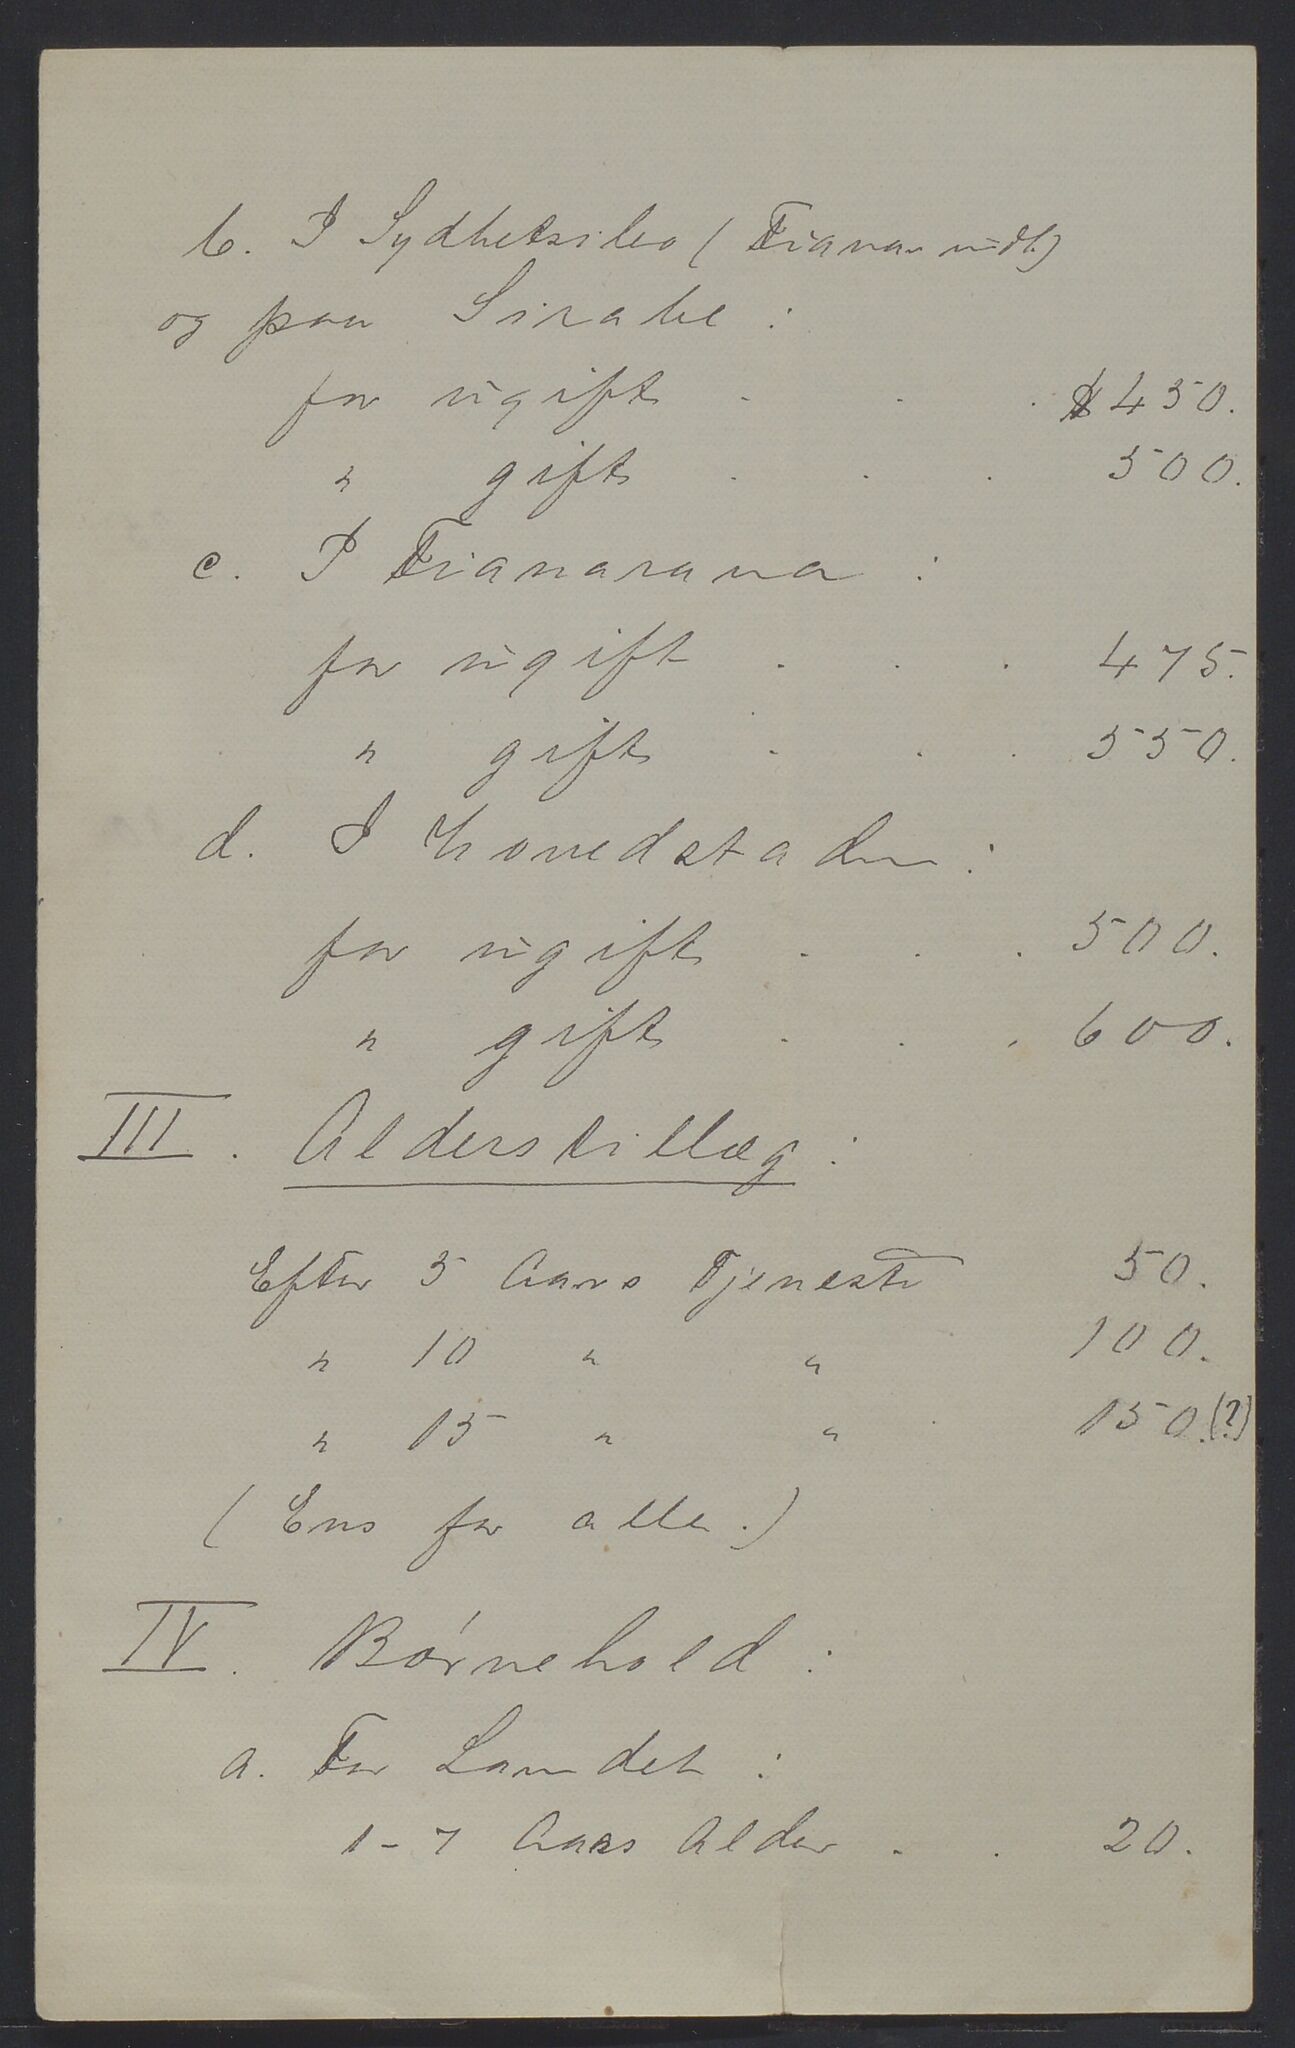 b. I Sydbetsileo (Fianar undt.)
og paa Sirabe :
for ugift . . . $ 450.
" gift . . . 500.
c. I Fianarana :
for ugift . . . 475.
" gift . . . 550.
d. I Hovedstaden :
for ugift . . . 500.
" gift . . . 600.
III. Alderstillæg :
Efter 5 Aars Tjeneste 50.
" 10 " " 100.
" 15 " " 150.(?)
(Ens for alle.)
IV. Børnehold :
a. For Landet :
1-7 Aars Alder . . 20.